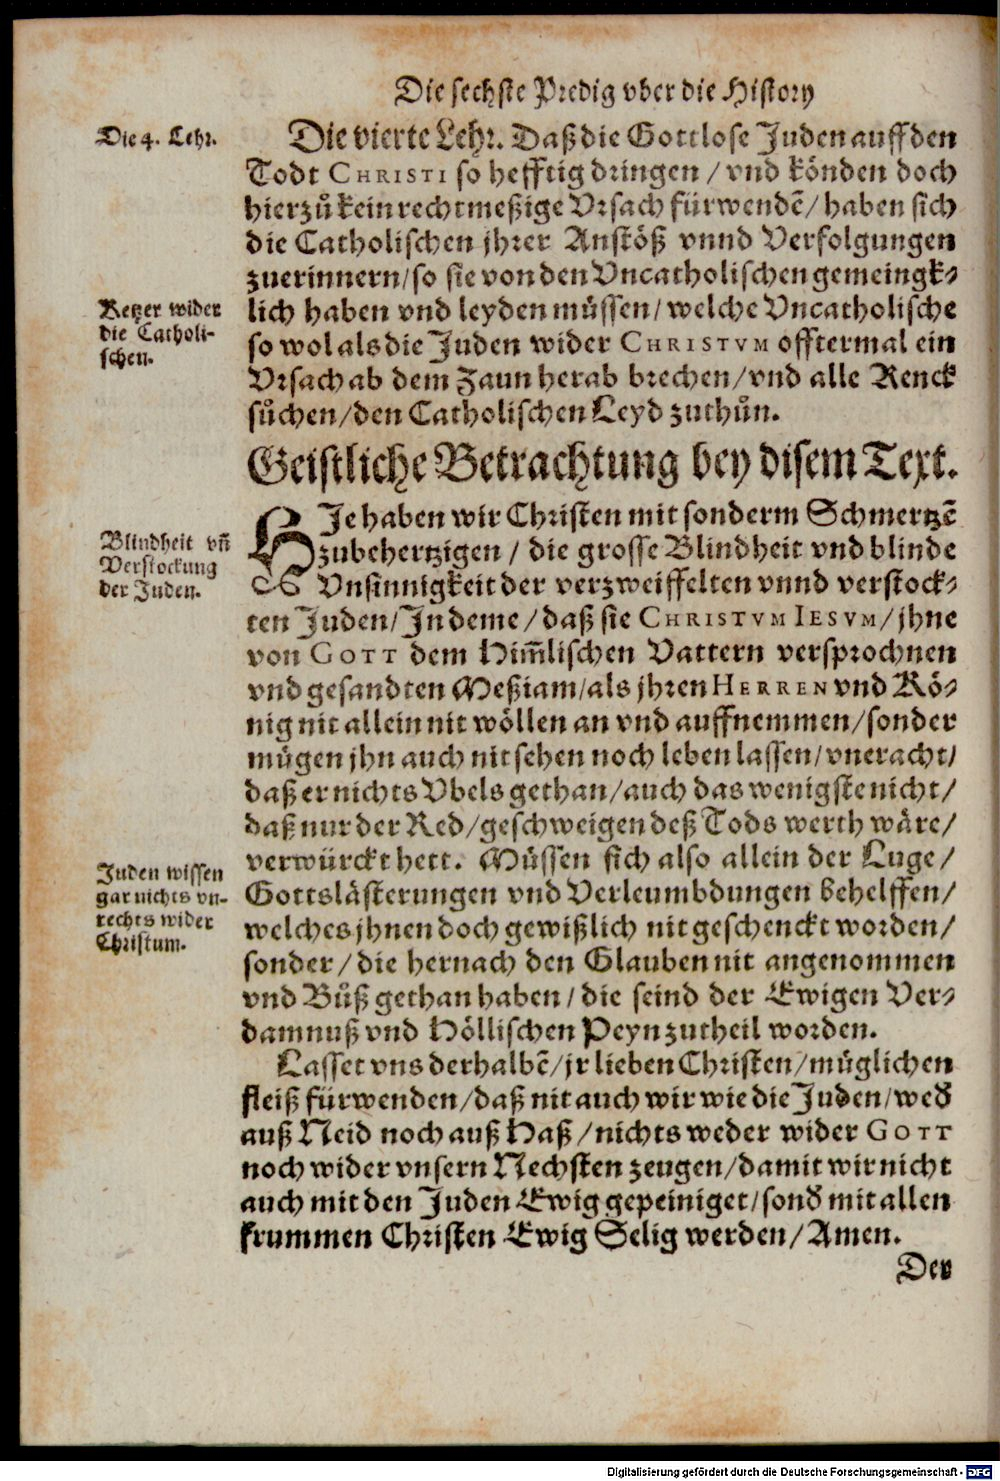 Die sechste Predig vber die History
Die 4. Lehr.
Die vierte Lehr. Daß die Gottlose Juden auff den
Todt CHRISTI so hefftig dringen / vnd könden doch
hierzů kein rechtmeßige Vrsach fürwendẽ / haben sich
die Catholischen jhrer Anstöß vnnd Verfolgungen
zuerinnern / so sie von den Vncatholischen gemeingk⸗
Ketzer wider
die Catholi-
schen.
lich haben vnd leyden müssen / welche Vncatholische
so wol als die Juden wider CHRISTVM offtermal ein
Vrsach ab dem Zaun herab brechen / vnd alle Renck
sůchen / den Catholischen Leyd zuthůn.
Geistliche Betrachtung bey disem Text.
Blindheit vñ
Verstockung
der Juden.
HJe haben wir Christen mit sonderm Schmertzẽ
zubehertzigen / die grosse Blindheit vnd blinde
Vnsinnigkeit der verzweiffelten vnnd verstock⸗
ten Juden / Jn deme / daß sie CHRISTVM IESVM / jhne
von GOTT dem Him̃lischen Vattern versprochnen
vnd gesandten Meßiam / als jhren HERREN vnd Kö⸗
nig nit allein nit wöllen an vnd auffnemmen / sonder
mügen jhn auch nit sehen noch leben lassen / vneracht /
daß er nichts Vbels gethan / auch das wenigste nicht /
daß nur der Red / geschweigen deß Tods werth wäre /
Juden wissen
gar nichts vn-
rechts wider
Christum.
verwürckt hett. Müssen sich also allein der Luge /
Gottslästerungen vnd Verleumbdungen behelffen /
welches jhnen doch gewißlich nit geschenckt worden /
sonder / die hernach den Glauben nit angenommen
vnd Bůß gethan haben / die seind der Ewigen Ver⸗
damnuß vnd Höllischen Peyn zutheil worden.
Lasset vns derhalbẽ / jr lieben Christen / müglichen
fleiß fürwenden / daß nit auch wir wie die Juden / wed̕
auß Neid noch auß Haß / nichts weder wider GOTT
noch wider vnsern Nechsten zeugen / damit wir nicht
auch mit den Juden Ewig gepeiniget / sond̕ mit allen
frummen Christen Ewig Selig werden / Amen.
Der
Digitalisierung gefördert durch die Deutsche Forschungsgemeinschaft - DFG